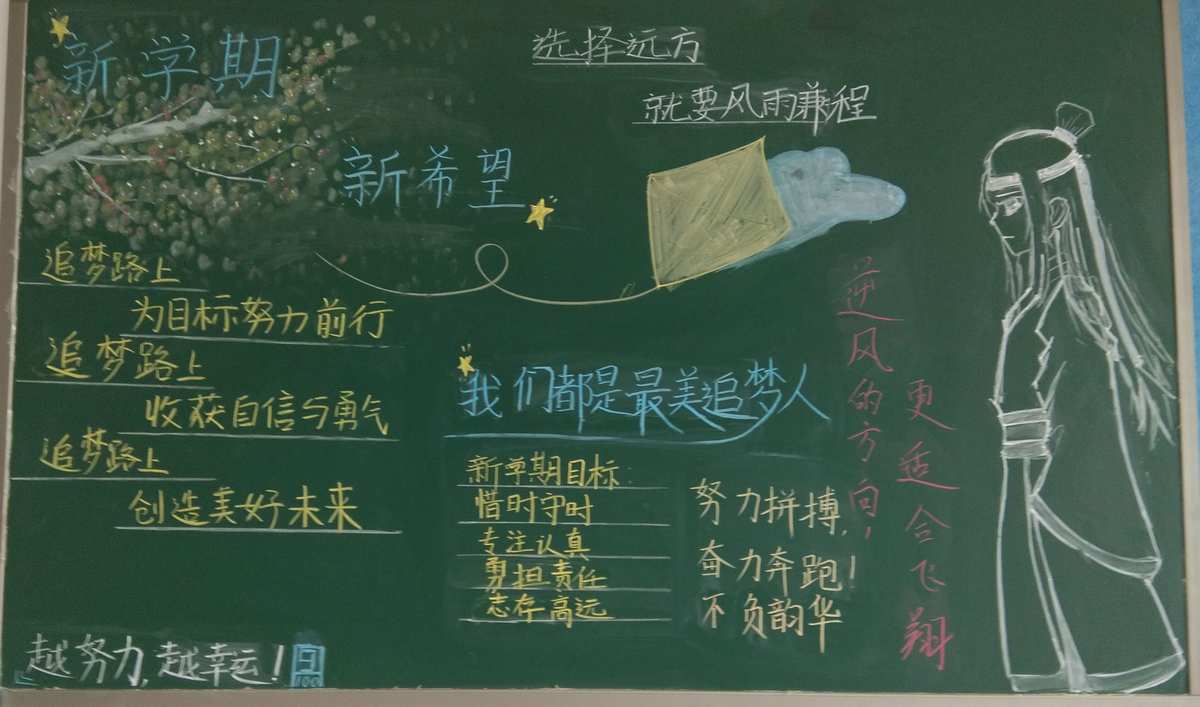 新学期
新希望
选择远方
就要风雨兼程
追梦路上
为目标努力前行
追梦路上
收获自信与勇气
追梦路上
创造美好未来
越努力,越幸运!
我们都是最美追梦人
新学期目标:
惜时守时
专注认真
勇担责任
志存高远
努力拼搏,
奋力奔跑!
不负韵华
逆风的方向,
更适合飞翔